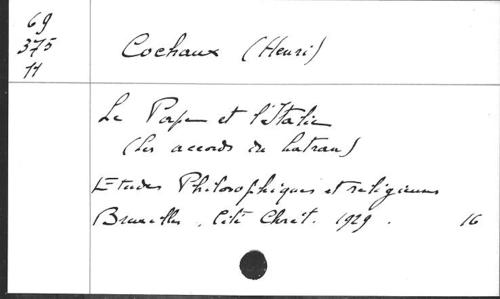 69
375
11
Cochaux (Henri)
Le Pape et l'Italie
(les accords du Latran)
Etudes Philosophiques et religieuses
Bruxelles, Cité Chrét. 1929. 16